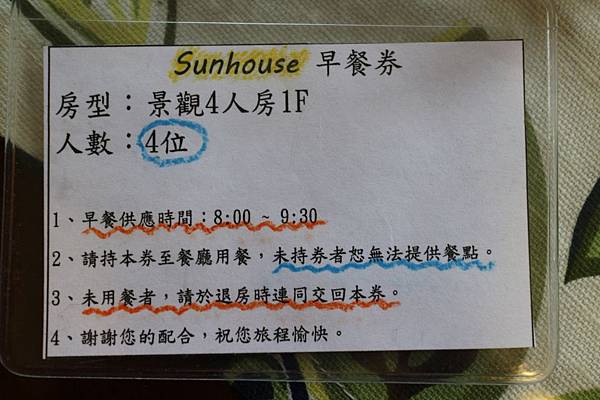 Sunhouse 早餐券
房型：景觀4人房1F
人數：4位
1、早餐供應時間：8:00 ~ 9:30
2、請持本券至餐廳用餐，未持券者恕無法提供餐點。
3、未用餐者，請於退房時連同交回本券。
4、謝謝您的配合，祝您旅程愉快。